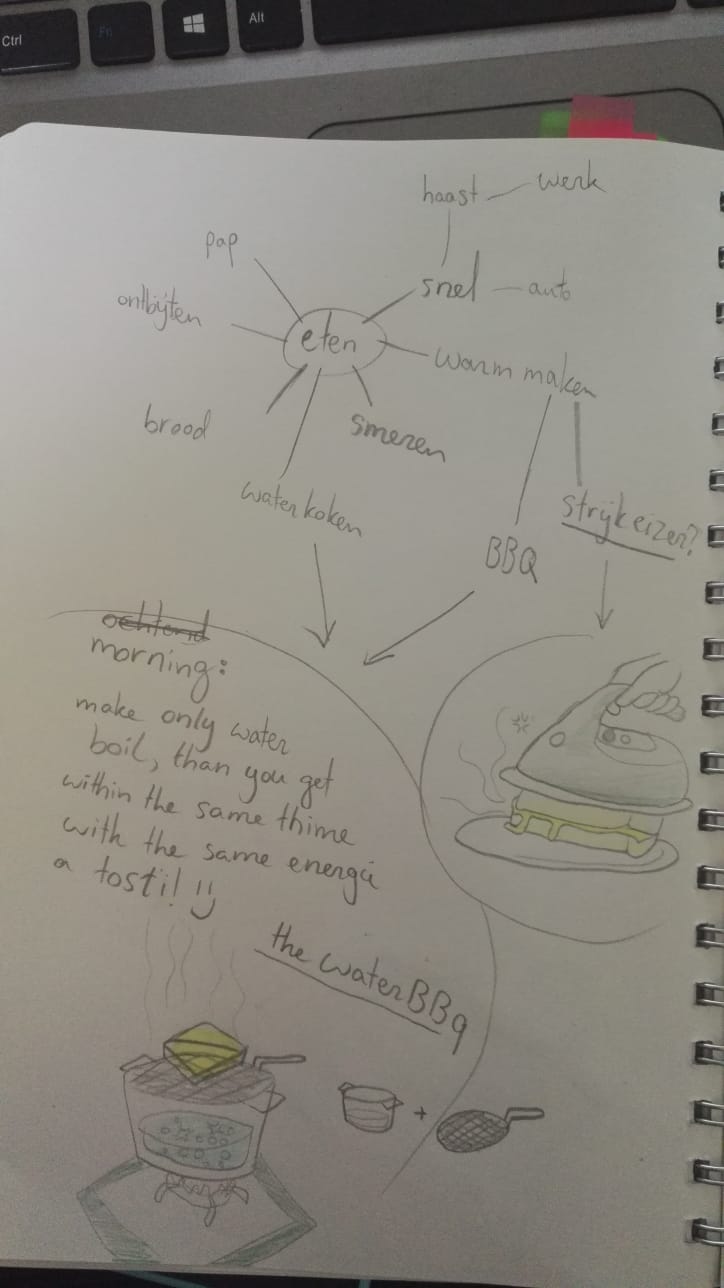 Ctrl
Fn
Alt
haast
werk
pap
snel
auto
ontbijten
eten
warm maken
brood
smeren
water koken
strijkeizer?
BBQ
ochtend
morning:
make only water
boil, than you get
within the same thime
with the same energi
a tosti!!
the waterBBq
+